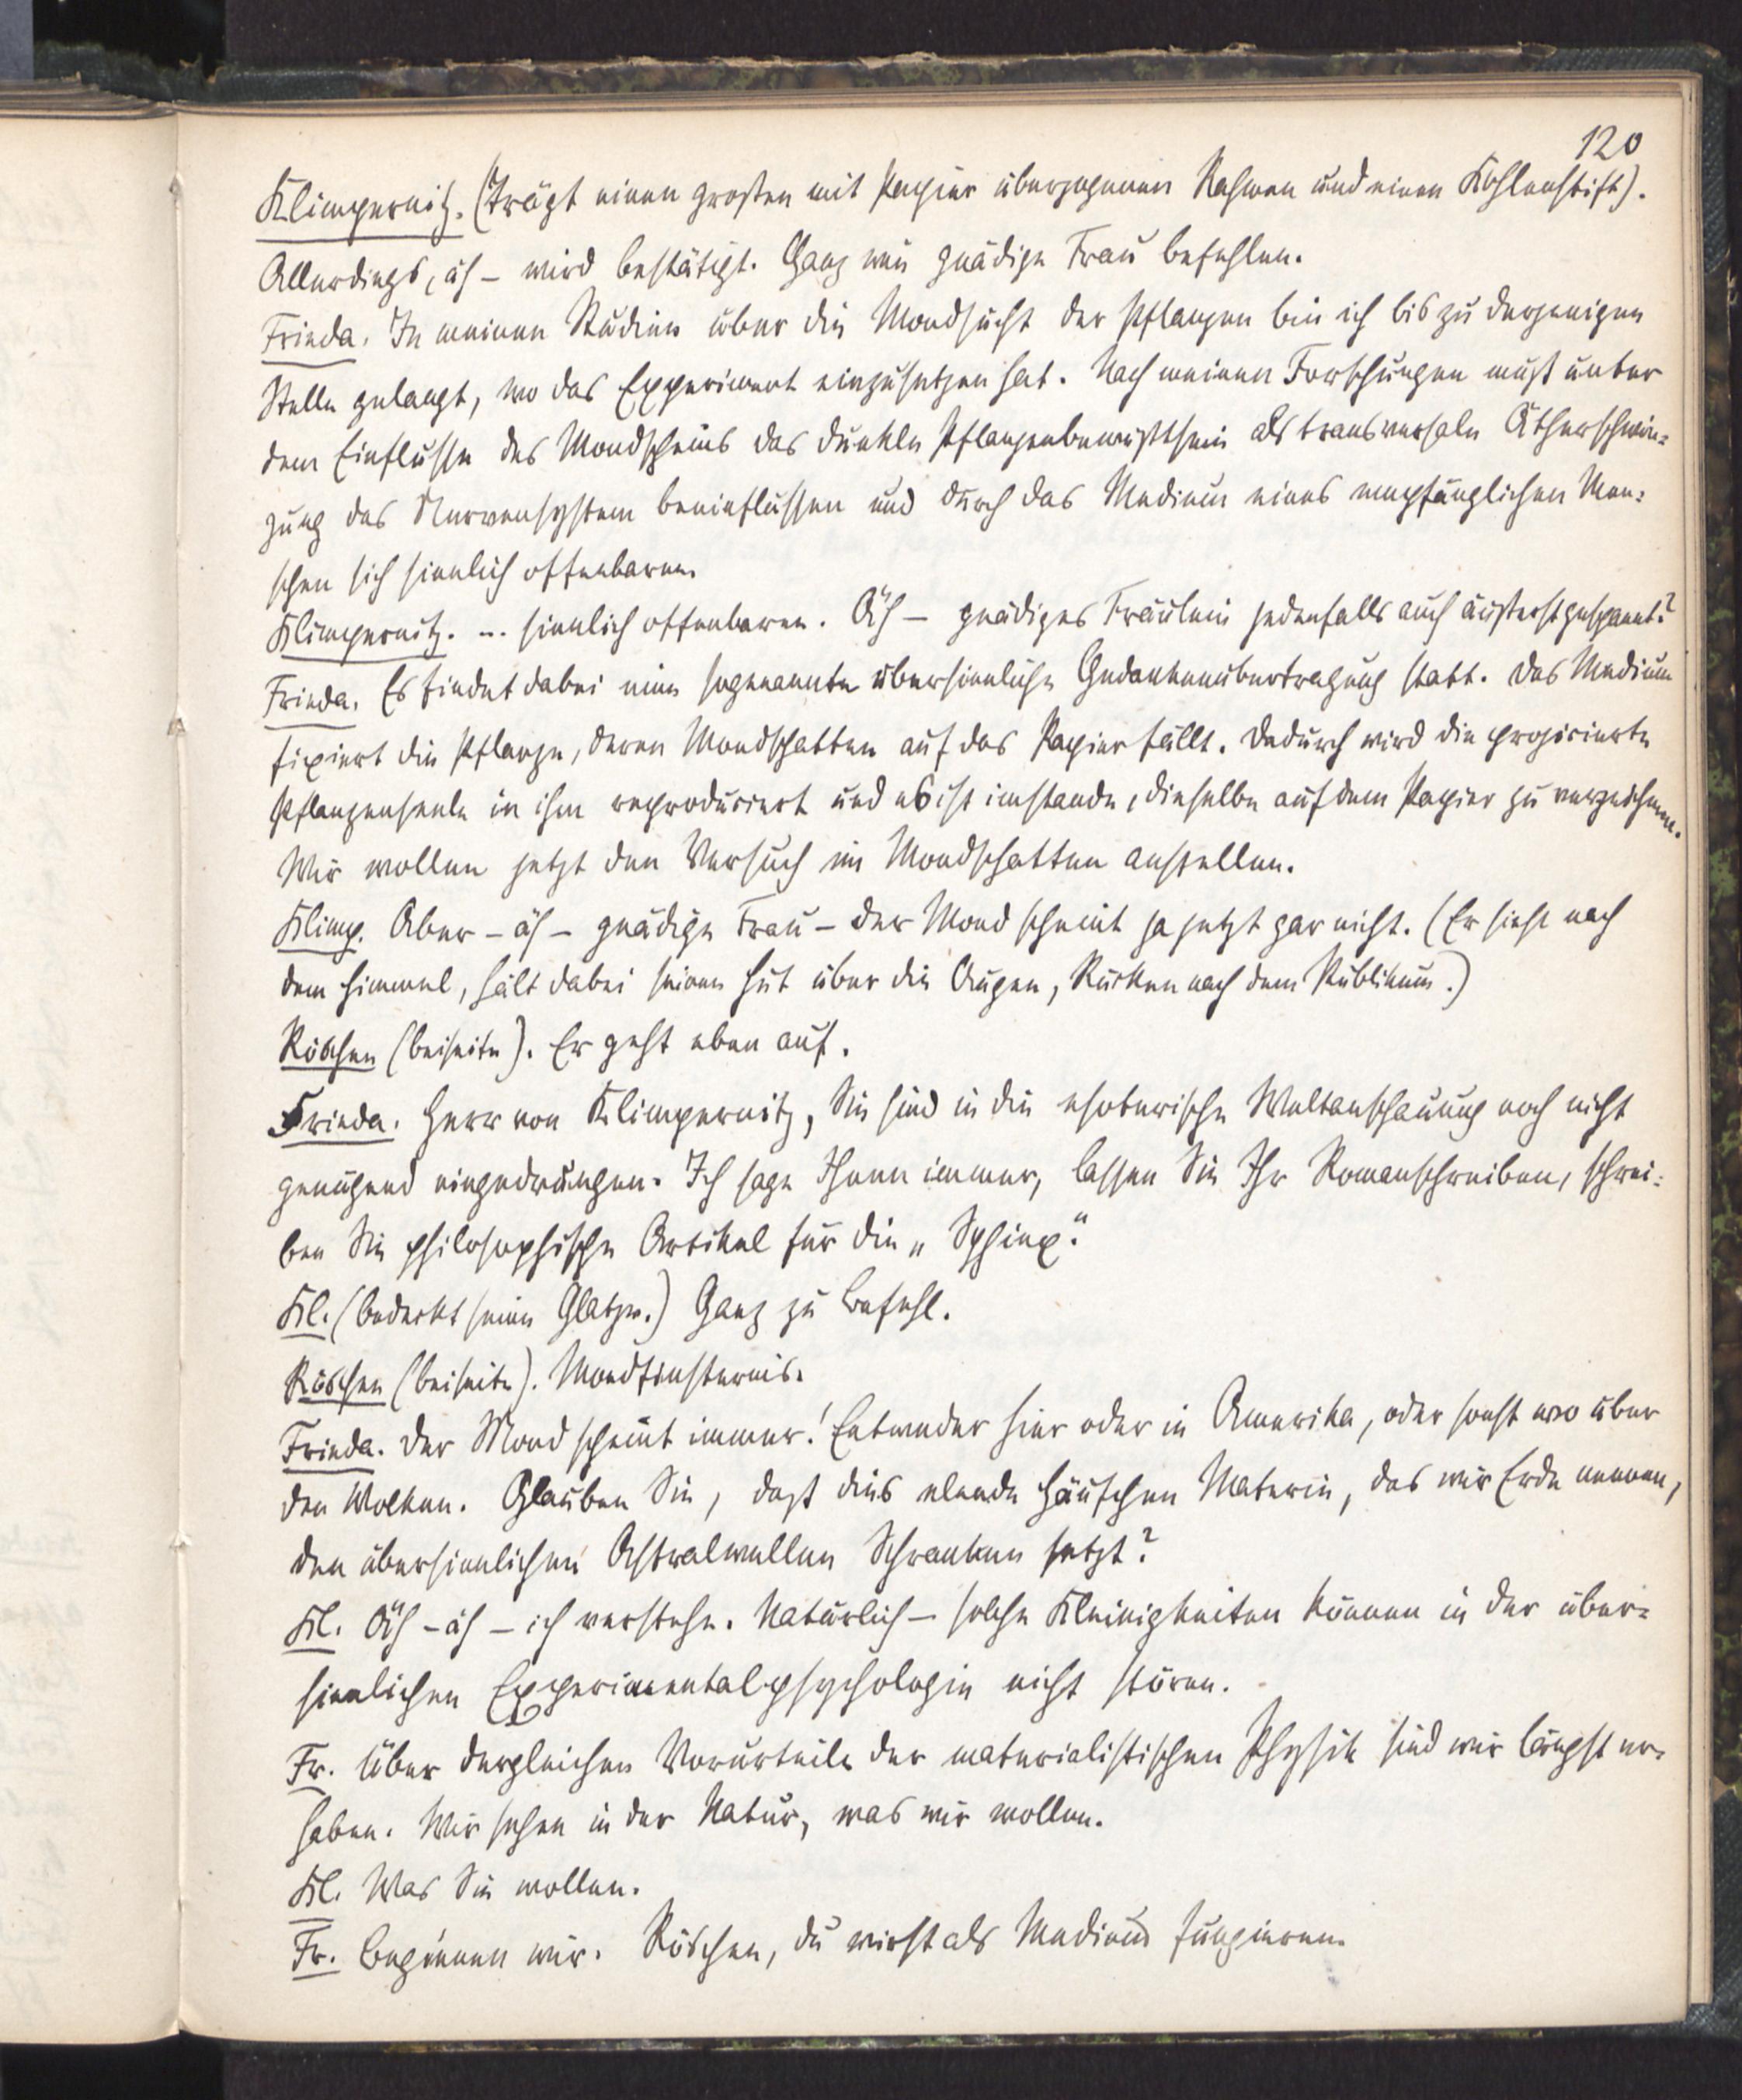 120
Klimpernitz. (Trägt einen großen mit Papier überzogenen Rahmen und einen Kohlenstift).
Allerdings, äh – wird bestätigt. Ganz wie gnädige Frau befehlen.
Frieda. In meinen Studien über die Mondsucht der Pflanzen bin ich bis zu derjenigen
Stelle gelangt, wo das Experiment einzusetzen hat. Nach meinen Forschungen muß unter
dem Einflusse des Mondscheins das dunkle Pflanzenbewußtsein als transversale Ätherschwin-
gung das Nervensystem beeinflussen und durch das Medium eines empfänglichen Men-
schen sich sinnlich offenbaren.
Klimpernitz. ... sinnlich offenbaren. Äh – gnädiges Fräulein jedenfalls auch äußerst gespannt?
Frieda. Es findet dabei eine sogenannte übersinnliche Gedankenübertragung statt. Das Medium
fixiert die Pflanze, deren Mondschatten auf das Papier fällt. Dadurch wird die projicierte
Pflanzenseele in ihm reproduciert und es ist imstande, dieselbe auf dem Papier zu verzeichnen.
Wir wollen jetzt den Versuch im Mondschatten anstellen.
Klimp. Aber – äh – gnädige Frau – der Mond scheint ja jetzt gar nicht. (Er sieht nach
dem Himmel, hält dabei seinen Hut über die Augen, Rücken nach dem Publikum.)
Röschen (beiseite). Er geht eben auf.
Frieda. Herr von Klimpernitz, Sie sind in die esoterische Weltanschauung noch nicht
genügend eingedrungen. Ich sage Ihnen immer, lassen Sie Ihr Romanschreiben, schrei-
ben Sie philosophische Artikel für die „Sphinx“.
Kl. (bedeckt seine Glatze.) Ganz zu Befehl.
Röschen (beiseite). Mondfinsternis.
Frieda. Der Mond scheint immer! Entweder hier oder in Amerika, oder sonst wo über
den Wolken. Glauben Sie, daß dies elende Häufchen Materie, das wir Erde nennen,
den übersinnlichen Astralwellen Schranken setzt?
Kl. Äh – äh – ich verstehe. Natürlich – solche Kleinigkeiten können in der über-
sinnlichen Experimentalpsychologie nicht stören.
Fr. Über dergleichen Vorurteile der materialistischen Physik sind wir längst er-
haben. Wir sehen in der Natur, was wir wollen.
Kl. Was Sie wollen.
Fr. Beginnen wir. Röschen, du wirst als Medium fungieren.